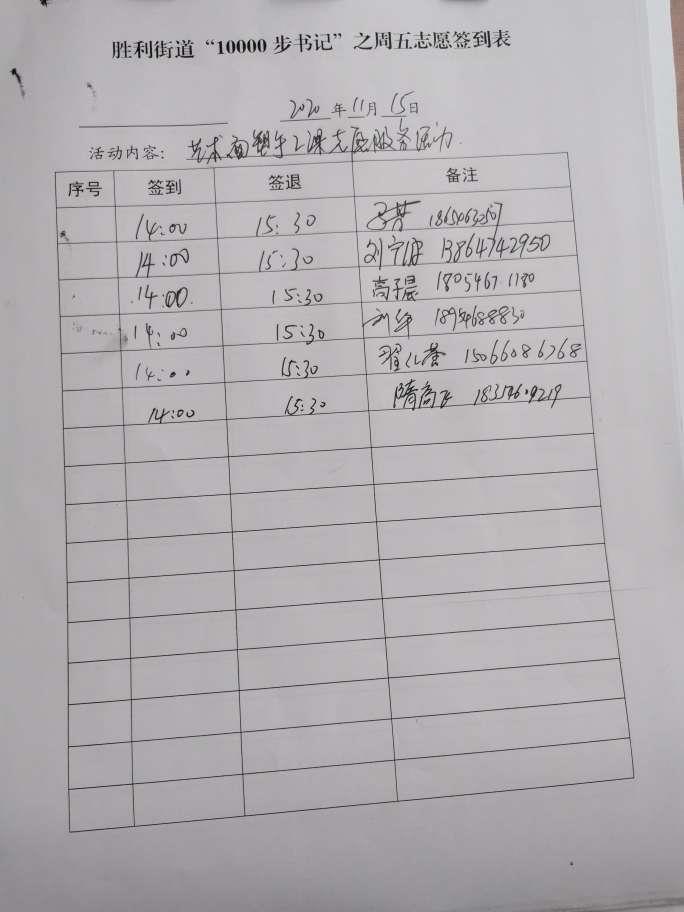 胜利街道“10000步书记”之周五志愿签到表
2020年11月15日
活动内容：艺术面塑手工课志愿服务活动.
序号 签到 签退 备注
14:00 15:30
14:00 15:30 刘宁 13864742950
14:00 15:30 高子晨 18054671180
14:00 15:30 刘华 18954688830
14:00 15:30 15066086768
14:00 15:30 隋高飞